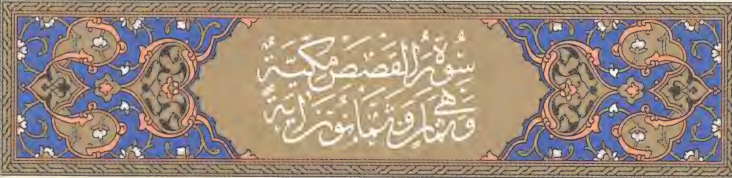 سُورَةُ الْقَصَصِ مَكِّيَّةٌ
وَهِيَ ثَمَانٍ وَثَمَانُونَ اٰيَةً